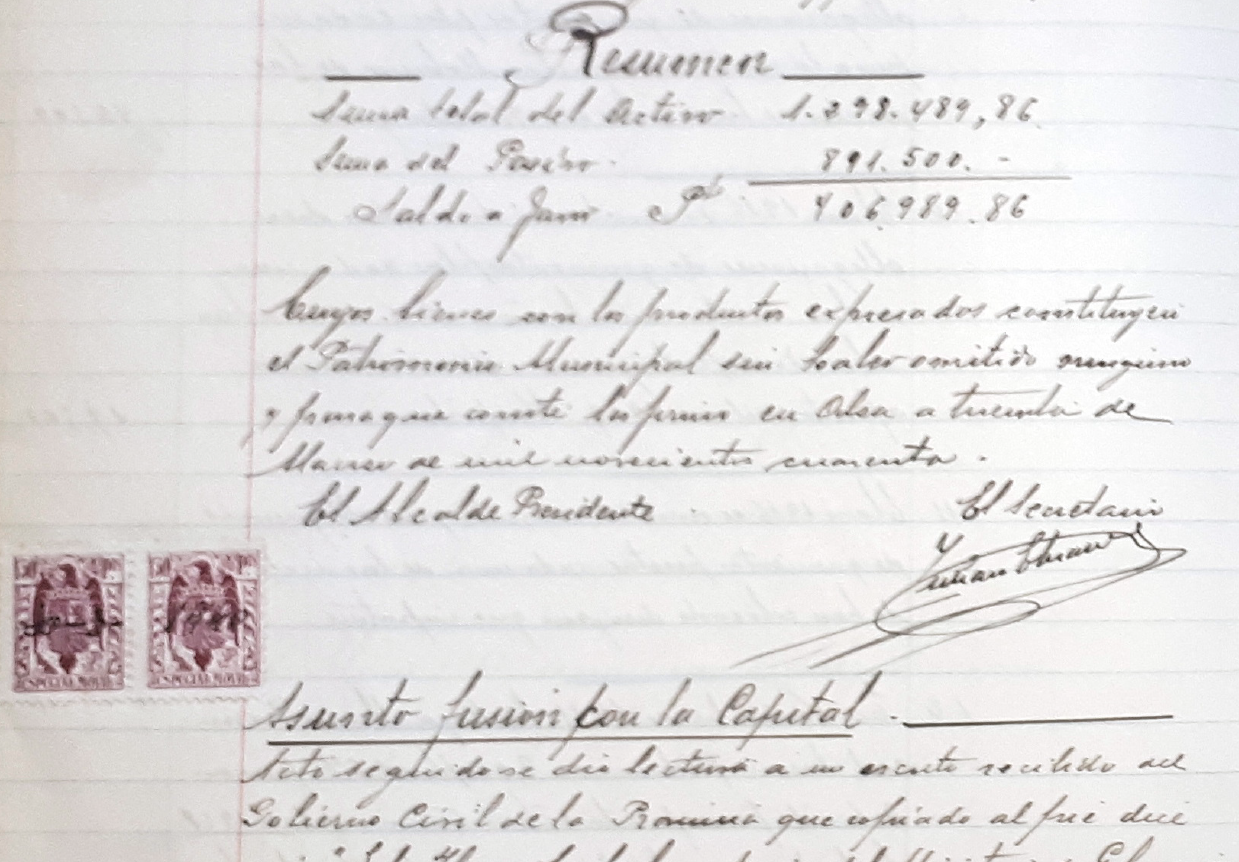 Resumen
Suma total del Activo 1.298.489,86
Suma del Pasivo. 891.500.-
Saldo a favor Pts 406.989.86
Cuyos bienes con los productos expresados constituyen
el Patrimonio Municipal sin haber omitido ninguno
y para que conste la firmo en a treinta de
Marzo de mil novecientos cuarenta.
El Alcalde Presidente El Secretario
Julián
ESPECIAL MOVIL ESPECIAL MOVIL
Asunto fusion con la Capital.
Acto seguido se dio lectura a un escrito recibido del
Gobierno Civil de la Provincia que copiado al pie dice